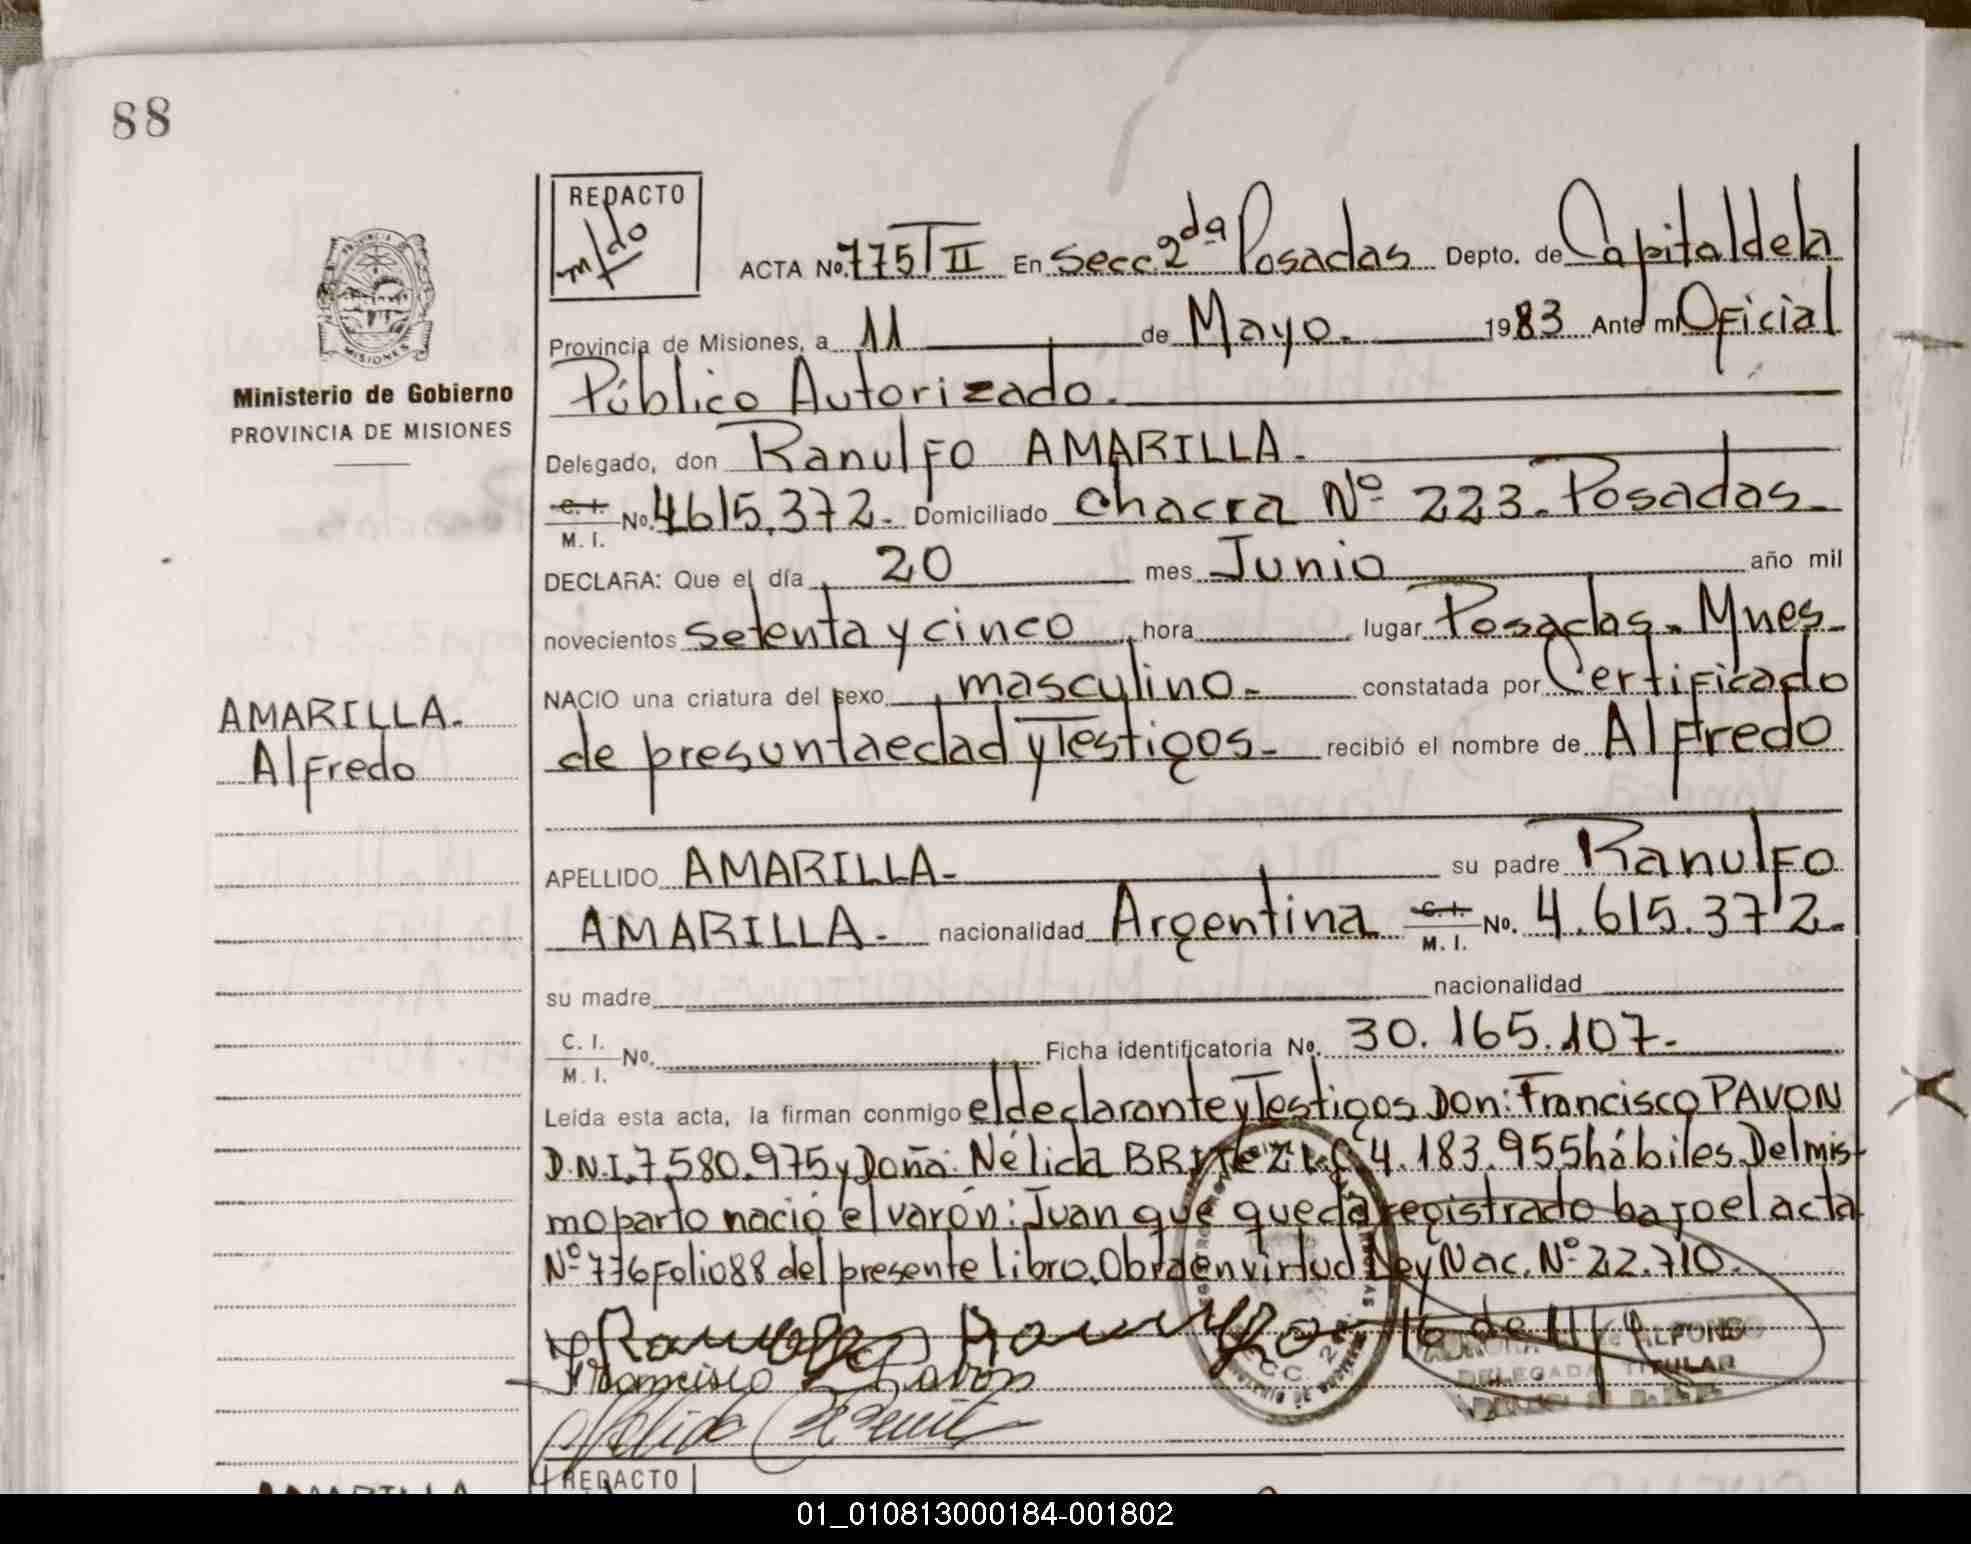 88
REDACTO
ACTA No. 775 T II En Secc. 2da Posadas Depto. de Capital de la
Provincia de Misiones, a 11 de Mayo. 1983 Ante mi Oficial
Público Autorizado.
PROVINCIA DE
MISIONES
Ministerio de Gobierno
PROVINCIA DE MISIONES
Delegado, don Ranulfo AMARILLA.
C. I. M. I. No. 4615.372. Domiciliado Chacra Nº 223. Posadas.
DECLARA: Que el día 20 mes Junio año mil
novecientos setenta y cinco hora lugar Posadas. Mnes.
NACIO una criatura del sexo masculino. constatada por Certificado
AMARILLA.
Alfredo
de presunta edad y Testigos. recibió el nombre de Alfredo
APELLIDO AMARILLA. su padre Ranulfo
AMARILLA. nacionalidad Argentina C. I. M. I. No. 4.615.372.
su madre nacionalidad
C. I. M. I. No. Ficha identificatoria No. 30.165.107.
Leída esta acta, la firman conmigo el declarante y Testigos Don: Francisco PAVON
D.N.I. 7.580.975 y Doña: Nélida BRITEZ L.C. 4.183.955 hábiles. Del mis-
mo parto nació el varón: Juan que queda registrado bajo el acta
Nº 776 Folio 88 del presente libro. Obra en virtud Ley Nac. Nº 22.710.
Francisco Pavon
Nélida
DELEGADA TITULAR
REDACTO
AMARILLA
01_010813000184-001802